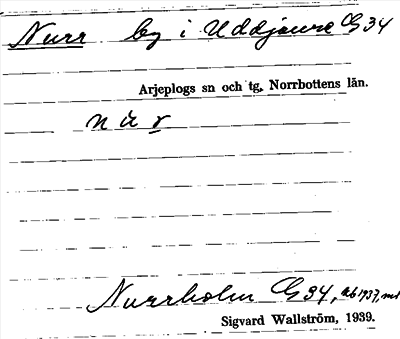 Nurr by i Uddjaure G 34
Arjeplogs sn och tg, Norrbottens län.
n u̇ r
Nurrholm G 34, ek 1937, mt
Sigvard Wallström, 1939.